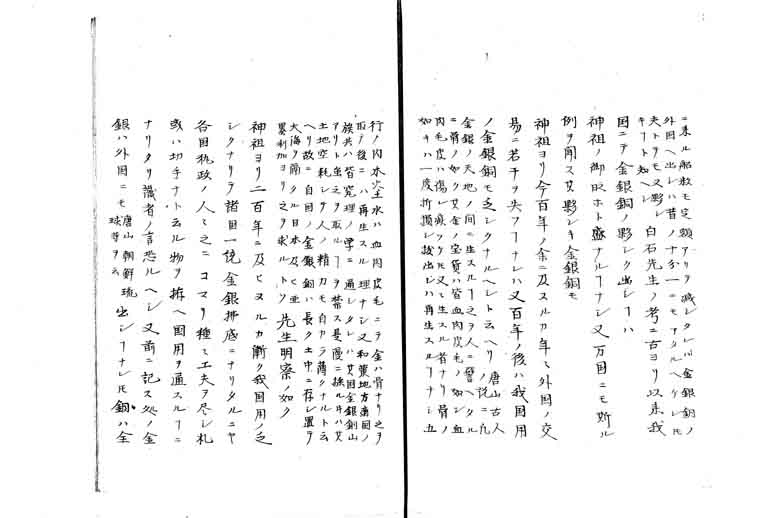 ニ来ル船数モ定額アリテ減シタレハ金銀銅ノ
外国ヘ出シハ昔ノ十分一ニモアタルヘケレトモ
夫トテモ又夥シ白石先生ノ考ニ古ヨリ以来我
キート知ヘシ
国ニテ金銀銅ノ夥シク出シーハ
神祖ノ御時ホト盛ナルーナシ又万国ニモ斯ル
例ヲ聞ス其夥シキ金銀銅モ
神祖ヨリ今百年ノ余ニ及スルカ年々外国ノ交
易ニ若干ヲ失フーナレハ又百年ノ後ハ我国用
ノ金銀銅モ乏シクナルヘシト云ヘリ
唐山古人
ノ説ニ凡
金銀ノ天地ノ間ニ生スルーヲ人ニ譬ヘタル
ニ骨ノ如ク其余ノ宝貨ハ皆血肉皮毛ノ如シ血
肉毛皮ハ傷レ痍ツケモ又々生スル者ナリ骨ノ
如キハ一度折損シ抜出シハ再生スルーナシ五
行ノ内木火土水ハ血肉皮毛ニテ金ハ骨ナリ之ヲ
取テ後ニハ再生スル理ナシ又和蘭地方諸国ノ
族共ハ皆究理ノ学ニ通シタレハ其国金銀銅山
アリト雖之ヲ取ルーヲ禁ス是慢ニ採ルキハ其
土地空耗シテ人ノ精力モ自カラ薄クナルト云
ヘリ故ニ自国ノ金銀銅ハ長ク土中ニ存シ置テ
大海ヲ隔タル日本及ヒ亜
墨利加ヨリ之ヲ求ルトソ
先生明察ノ如ク
神祖ヨリ二百年ニ及ヒヌルカ漸ク我国用ノ乏
シクナリテ諸国一統金銀拂底ニナリタルニヤ
各国執政ノ人々之ニコマリ種々工夫ヲ尽シ札
或ハ切手ナト云ル物ヲ拵ヘ国用ヲ通スルーニ
ナリタリ識者ノ言恐ルヘシ又前ニ記ス処ノ金
銀ハ外国ニモ
唐山朝鮮琉
球等ヲ云
出シーナレモ銅ハ全